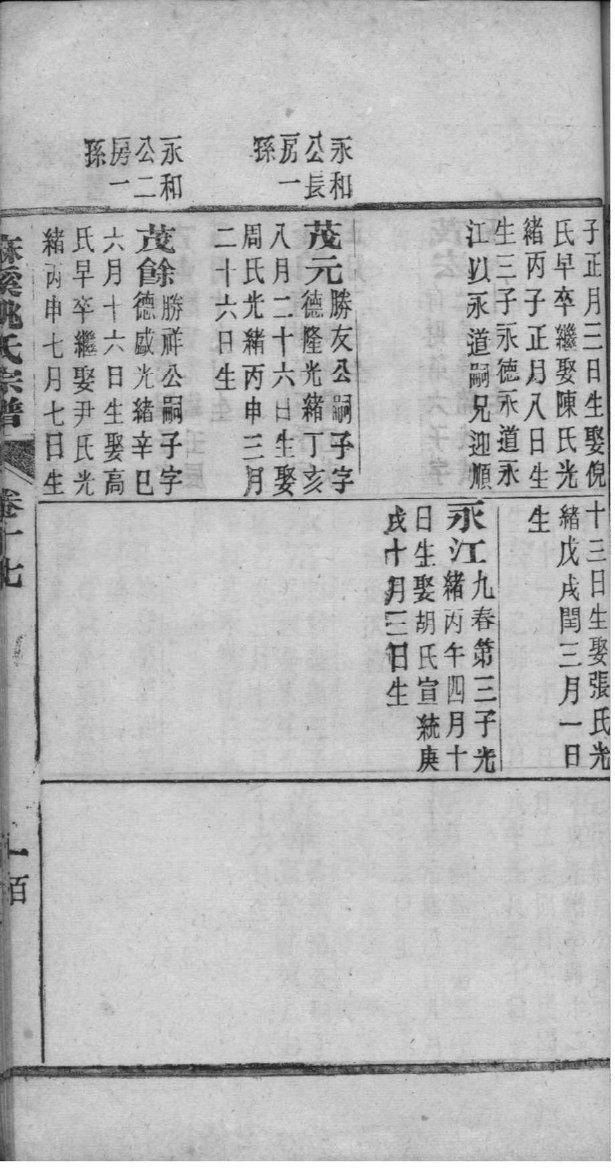 永和
公長
房一
孫
永和
公二
房一
孫
子正月三日生娶倪
氏早卒繼娶陳氏光
緒丙子正月八日生
生三子永德永道永
江以永道嗣兄迎順
茂元勝友公嗣子字
德隆光緒丁亥
八月二十六日生娶
周氏光緒丙申三月
二十六日生
茂餘勝祥公嗣子字
德盛光緒辛巳
六月十六日生娶高
氏早卒繼娶尹氏光
緒丙申七月七日生
十三日生娶張氏光
緒戊戌閏三月一日
生
永江九春第三子光
緒丙午四月十
日生娶胡氏宣統庚
戌十月三日生
麻溪姚氏宗譜
卷十七